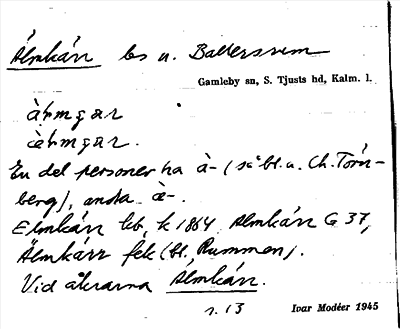 Älmkärr bs u. Ballersrum
Gamleby sn, S. Tjusts hd, Kalm. l.
En del personer ha à- (så bl.a. Ch. Törn-
berg), andra -.
Elmkärr kb, k 1864 Almkärr G 37,
Älmkärr fek (bl. Rummen).
Vid åkrarna Älmkärr.
s. 13
Ivar Modéer 1945